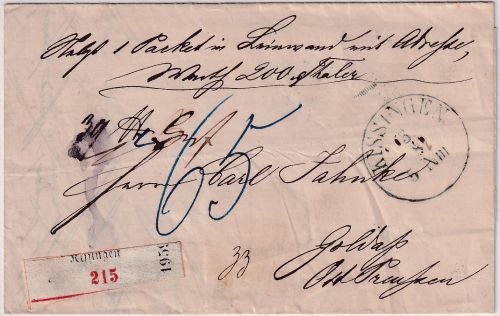 Nebst 1 Packet in Leinwand mit Adresse,
Werth 200 Thaler
39
65
KISSINGEN
Herrn Carl Jahnke
Goldap
Ost Preussen
33
Kissingen
215
195